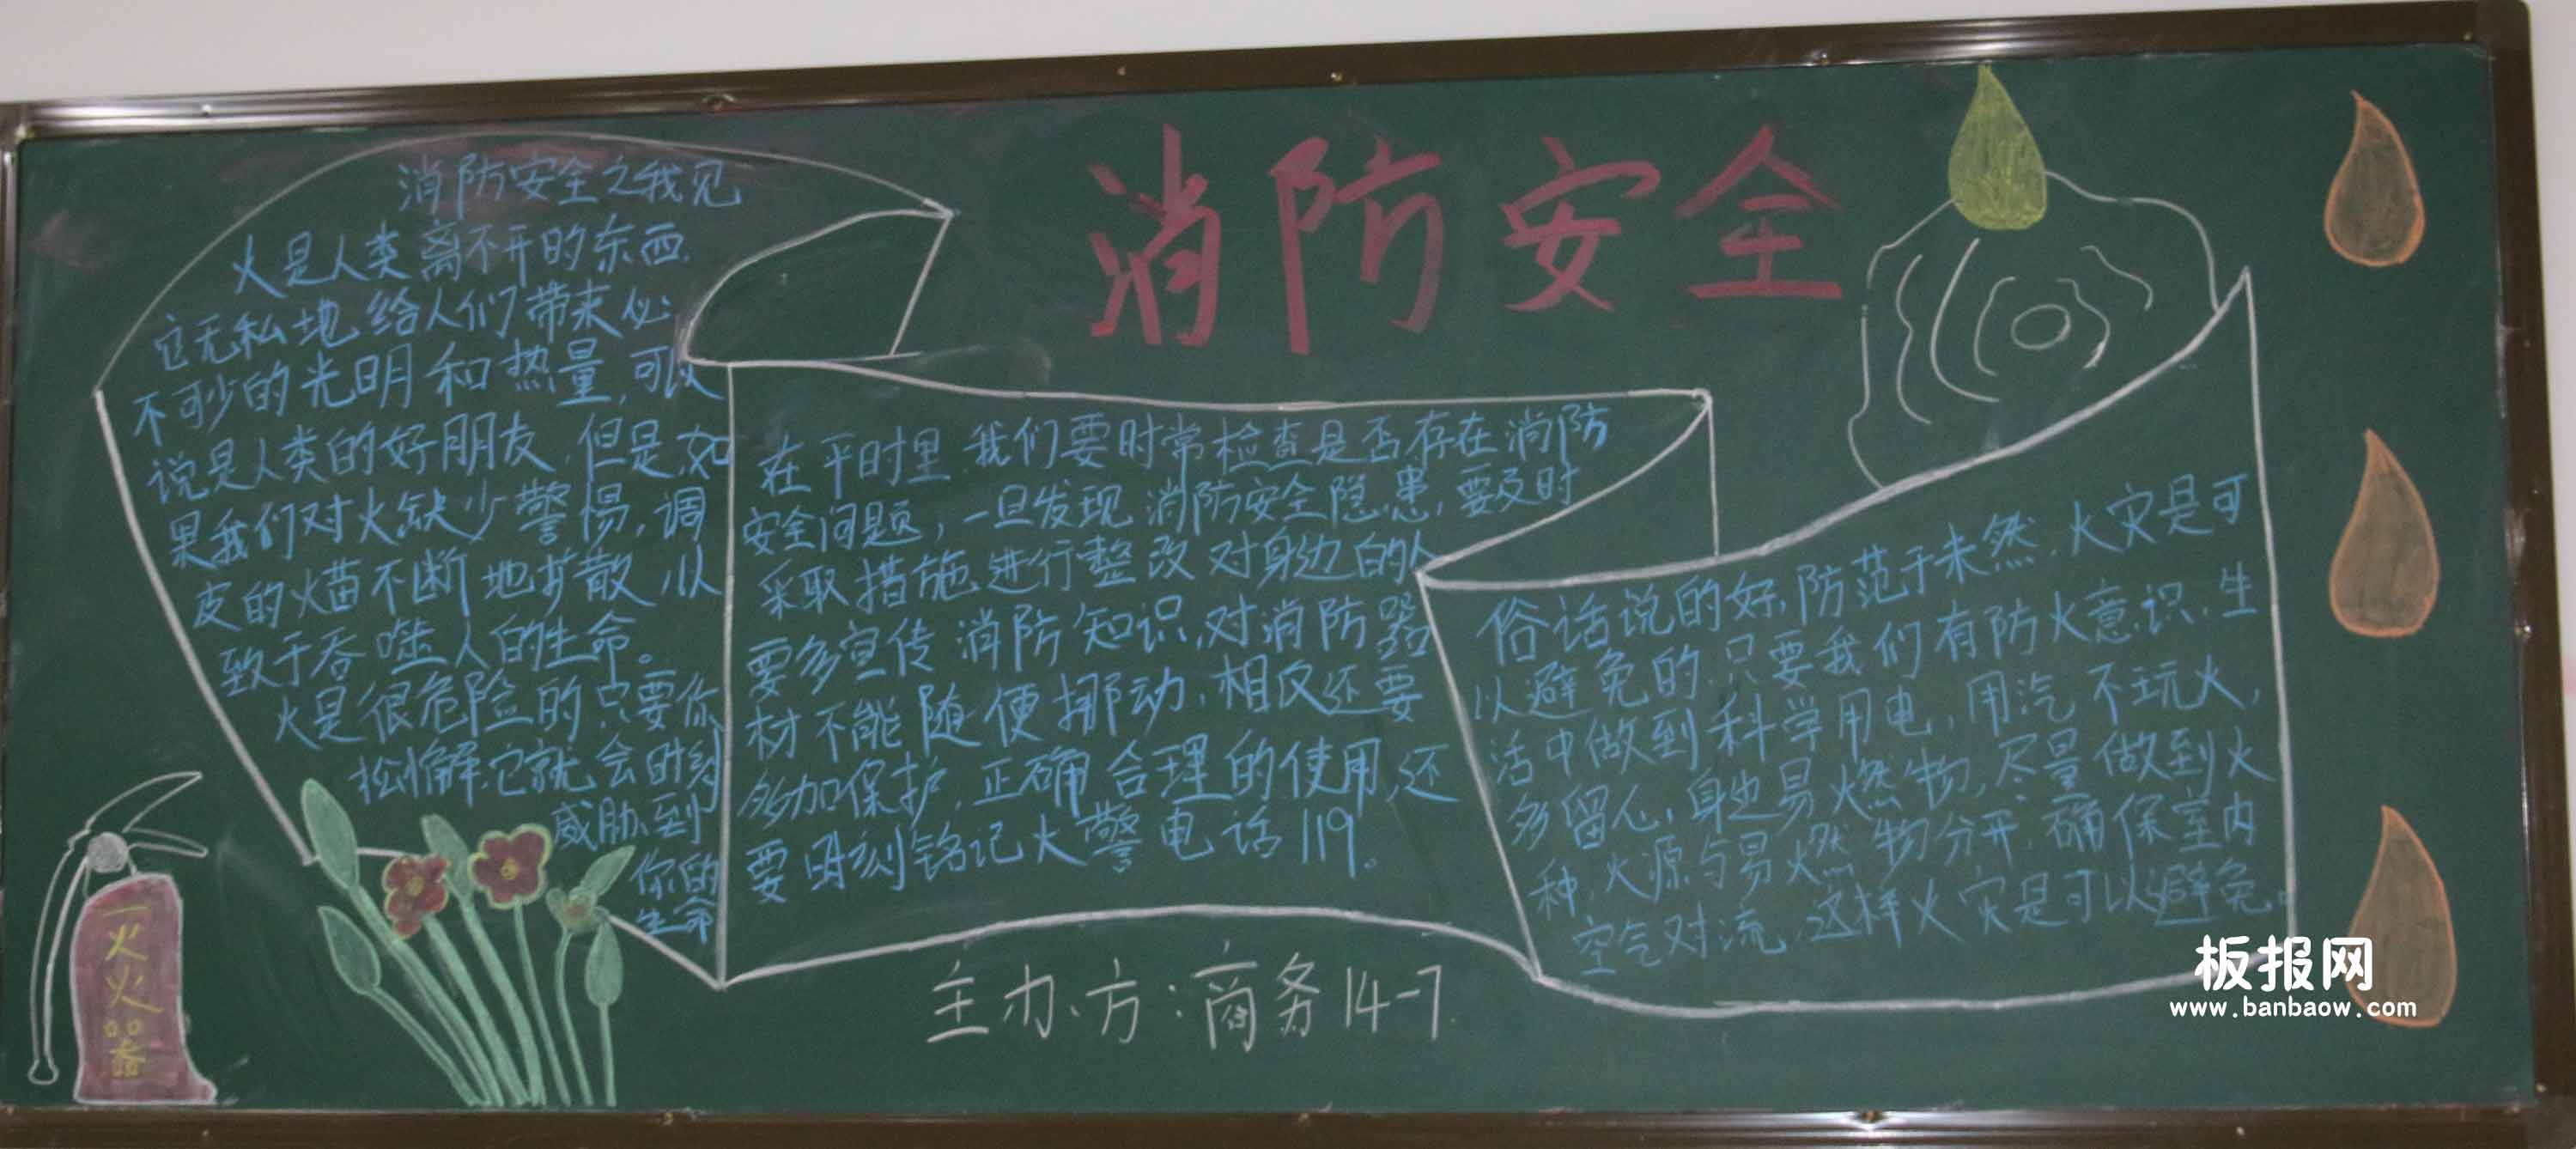 消防安全
消防安全之我见
火是人类离不开的东西.
它无私地给人们带来必
不可少的光明和热量,可以
说是人类的好朋友,但是,如
果我们对火缺少警惕,调
皮的火苗不断地扩散,以
致于吞噬人的生命。
火是很危险的只要你
松懈它就会时刻
威胁到
你的
生命
在平时里我们要时常检查是否存在消防
安全问题,一旦发现消防安全隐患,要及时
采取措施进行整改对身边的人
要多宣传消防知识,对消防器
材不能随便挪动,相反还要
多加保护,正确合理的使用,还
要时刻铭记火警电话119。
俗话说的好,防范于未然,火灾是可
以避免的,只要我们有防火意识,生
活中做到科学用电,用汽不玩火,
多留心,身边易燃物,尽量做到火
种,火源与易燃物分开,确保室内
空气对流,这样火灾是可以避免。
灭火器
主办方:商务14-7
板报网
www.banbaow.com